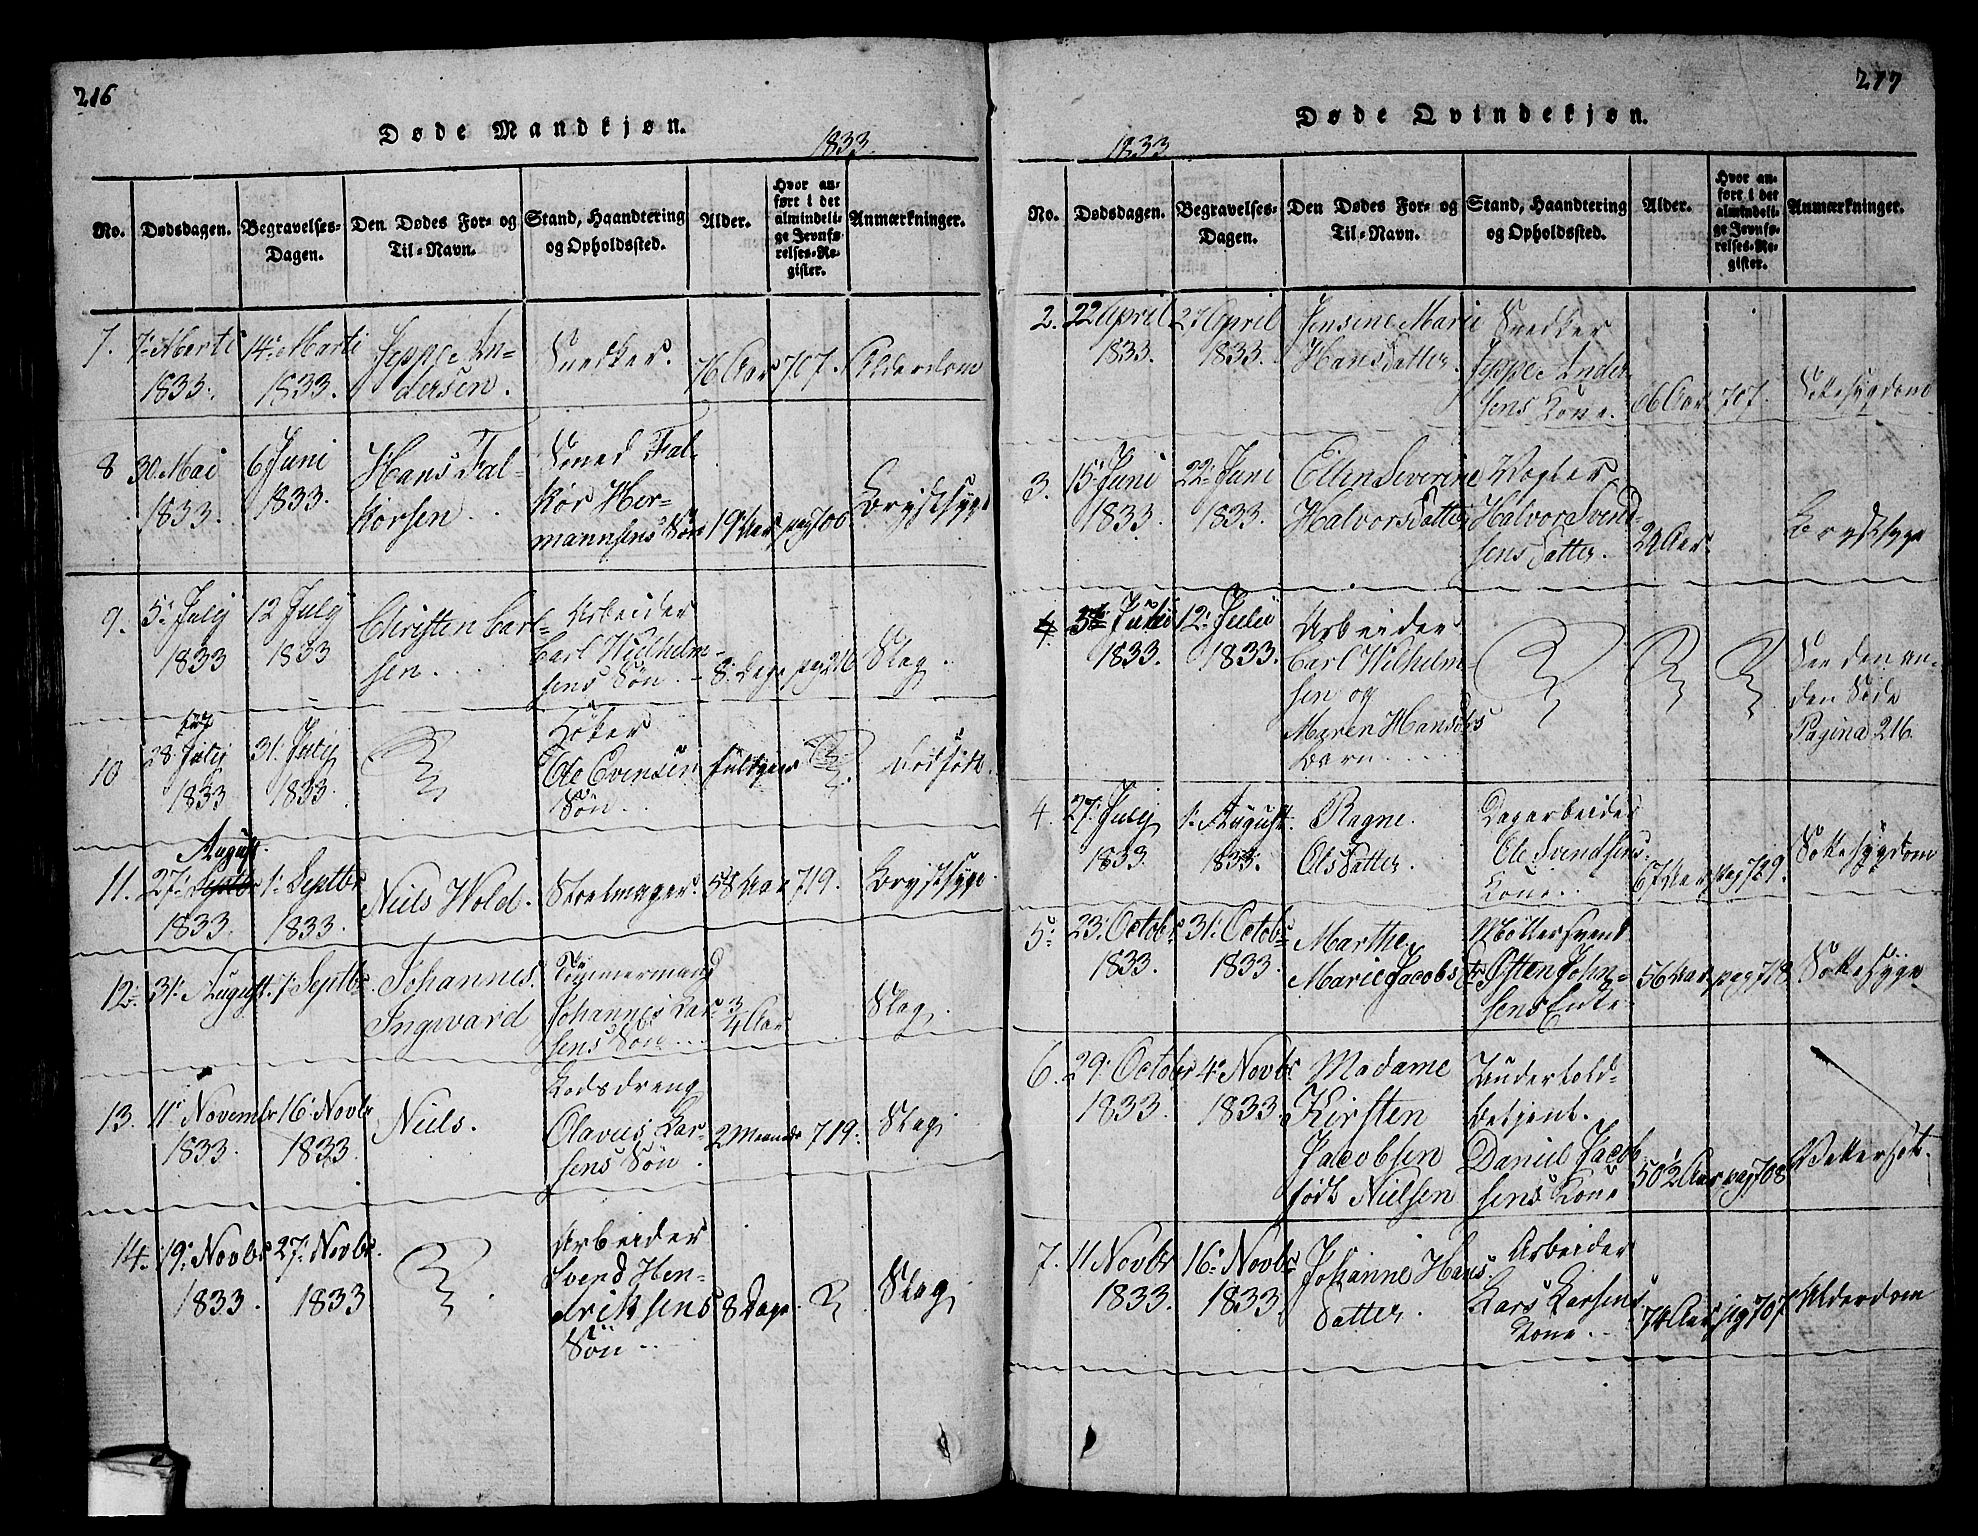 216
Døde Mandkjøn.
1833.
No.
Dødsdagen.
Begravelses-
Dagen.
Den Dødes For- og
Til-Navn.
Stand, Haandtering
og Opholdssted.
Alder.
Hvor an-
ført i det
almindeli-
ge Jevnfø-
relses-Re-
gister.
Anmærkninger.
7.
7de Marti
1833.
14de Marti
1833.
Jeppe An-
dersen.
Snedker.
76 Aar
707.
Alderdom
8
30 Mai
1833.
6 Juni
1833.
Hans Fal-
korsen.
Smed Fal-
kor Her-
mannsens Søn
19 Aar
pag 706
Brystsyge
9.
5. Julij
1833
12 Julij
1833
Christen Carl-
sen.
Arbeider
Carl Wilhelm-
sens Søn.
8. Dage
pag 216
Slag.
10
28. Julij
1833
31. Julij
1833.
Ole Evensen
Søn.
fuldgaaen
Dødfødt.
11.
August.
27. Septbr
1833.
1. Septbr
1833.
Niels Wold.
Stoelmager.
58 Aar
719.
Brystsyge.
12.
31. August.
1. Septbr.
Johannes
Ingward
Tømmermand
Johannes Lar-
sens Søn
3/4 Aar
Slag.
13.
11. Novembr
1833.
16. Novbr
1833.
Niels.
Olavus Lar-
sens Søn.
2 Maaneder
719.
Slag
14.
19. Novbr
1833.
27. Novbr.
1833
Arbeider
Svend Hen-
driksens
Søn
8 Dage.
Slag
217
Døde Qvindekjøn.
1833
No.
Dødsdagen.
Begravelses-
Dagen.
Den Dødes For- og
Til-Navn.
Stand, Haandtering
og Opholdssted.
Alder.
Hvor an-
ført i det
almindeli-
ge Jevnfø-
relses-Re-
gister.
Anmærkninger.
2.
22 April
1833.
27 April
1833.
Jensine Marie
Hansdatter.
Snedker
Jeppe Ander-
sens Kone.
66 Aar
707.
Sottesygdom
3.
15. Juni
1833.
22. Juni
1833.
Ellen Severine
Halvorsdatter
Vogter
Halvor Svend-
sens Datter.
Brystsyge
4.
5te Julii
1833.
12. Julii
1833.
Arbeider
Carl Wilhelm
sen og
Maren Hansdtrs
Barn
See den an-
den Side
Pagina 216
4.
27. Julij
1833.
1. August.
1833.
Ragne
Olsdatter.
Dagarbeider
Ole Svendsens
Kone.
67 Aar
pag 729.
Sottesygdom
5.
23. Octobr
1833.
31. Octobr
1833.
Marthe
Marie Jacobsdtr
Møllersvend
Østen John-
sens Enke
56 Aar
pag 718
Sottesyge
6.
29. October
1833.
4. Novbr.
1833
Madame
Kirsten
Jacobsen
født Nielsen
Undertold-
betjent.
Daniel Jacob
sens Kone
50 1/2 Aar
pag 708
Vattersot.
7.
11 Novbr
1833.
16. Novbr
1833.
Johanne Hans
Datter.
Arbeider
Lars Larsens
Kone.
74 Aar
pag 707
Alderdom